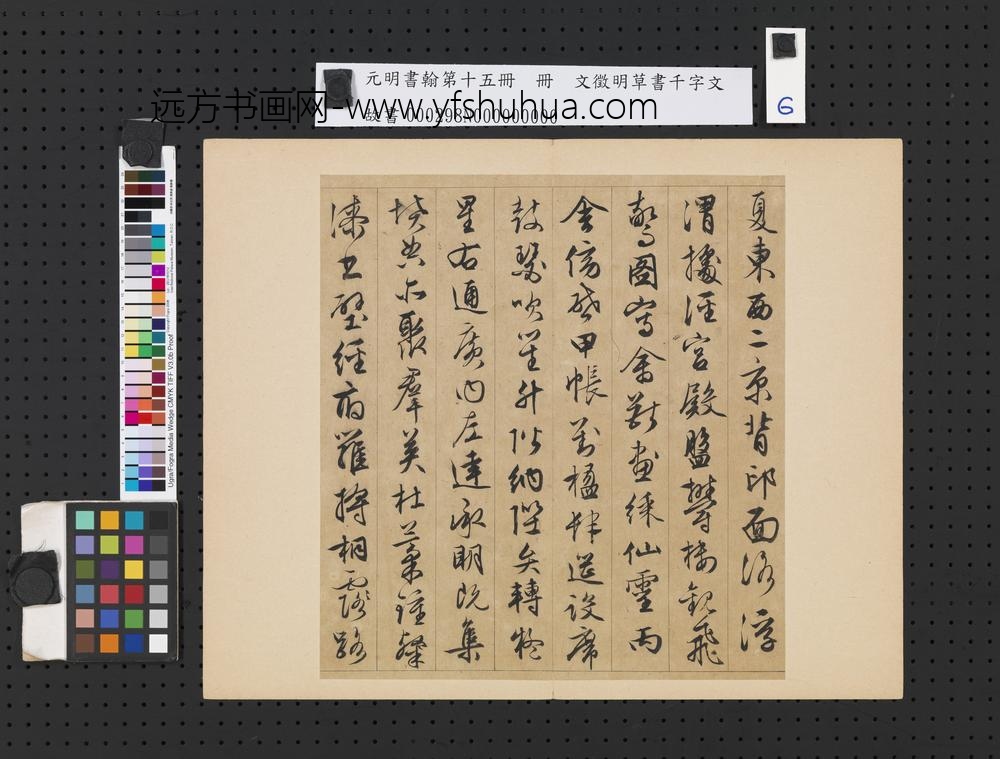 元明書翰第十五冊　冊　文徵明草書千字文
故書 000298N000000000
远方书画网-www.yfshuhua.com
6
夏東西二京背邙面洛浮
渭據涇宮殿盤鬱樓觀飛
驚圖寫禽獸畫綵仙靈丙
舍傍啓甲帳對楹肆筵設席
鼓瑟吹笙升階納陛弁轉疑
星右通廣內左達承明既集
墳典亦聚羣英杜藁鍾隸
漆書壁經府羅將相路
Ugra/Fogra Media Wedge CMYK TIFF V3.0b Proof